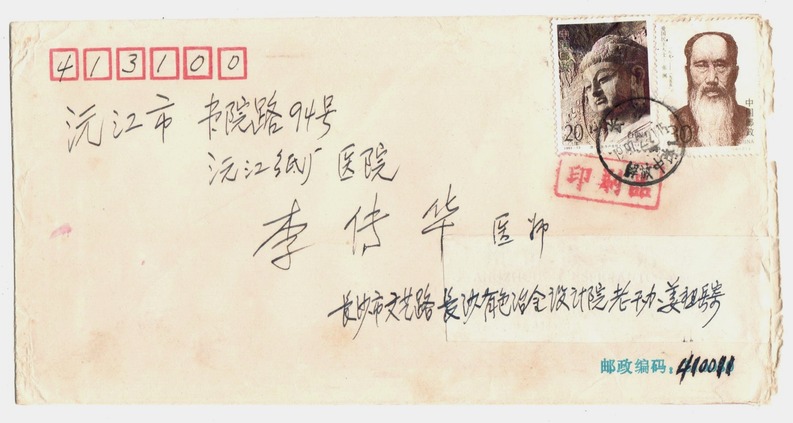 413100
沅江市 书院路94号
沅江纸厂医院
李传华 医师
长沙市文艺路长沙有色冶金设计院老干办 姜祖岳寄
邮政编码：410011
20
30
中国邮政
印刷品